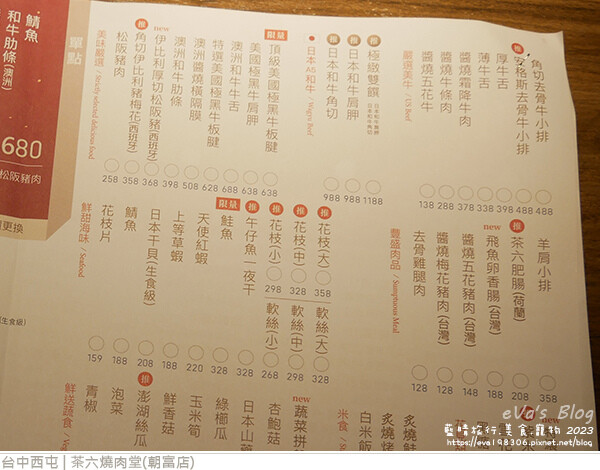 角切去骨牛小排
488
推
安格斯去骨牛小排
488
厚牛舌
398
薄牛舌
338
醬燒霜降牛肉
378
醬燒牛條肉
288
醬燒五花牛
138
嚴選美牛 / US Beef
推
極緻雙饌
1188
推
日本和牛肩胛
988
推
日本和牛角切
988
日本A5和牛 / Wagyu Beef
限量
頂級美國極黑牛板腱
638
美國極黑牛肩胛
638
澳洲和牛牛舌
688
特選美國極黑牛板腱
628
澳洲醬燒橫隔膜
508
澳洲和牛肋條
398
new
伊比利厚切松阪豬(西班牙)
368
推
角切伊比利豬梅花(西班牙)
358
松阪豬肉
258
美味嚴選 / Strictly selected delicious food
單點
羊肩小排
358
推
茶六肥腸(荷蘭)
208
new
飛魚卵香腸(台灣)
188
醬燒五花豬肉(台灣)
148
醬燒梅花豬肉(台灣)
128
去骨雞腿肉
128
豐盛肉品 / Sumptuous Meal
推
花枝(大)
358
軟絲(大)
328
推
花枝(中)
328
軟絲(中)
298
推
花枝(小)
298
軟絲(小)
268
推
午仔魚一夜干
220
限量
鮭魚
188
天使紅蝦
330
上等草蝦
188
日本干貝(生食級)
208
鯖魚
188
花枝片
159
鮮甜海味 / Seafood
白米飯
米食 /
new
蔬菜拼
杏鮑菇
日本山
綠櫛瓜
玉米筍
鮮香菇
推
澎湖絲瓜
泡菜
青椒
鮮送蔬食 /
鯖魚
和牛肋條(澳洲)
680
松阪豬肉
更換
(生食級)
eVa's Blog
藍晴旅行.美食.寵物 2023
https://eva198306.pixnet.net/blog
台中西屯 | 茶六燒肉堂(朝富店)